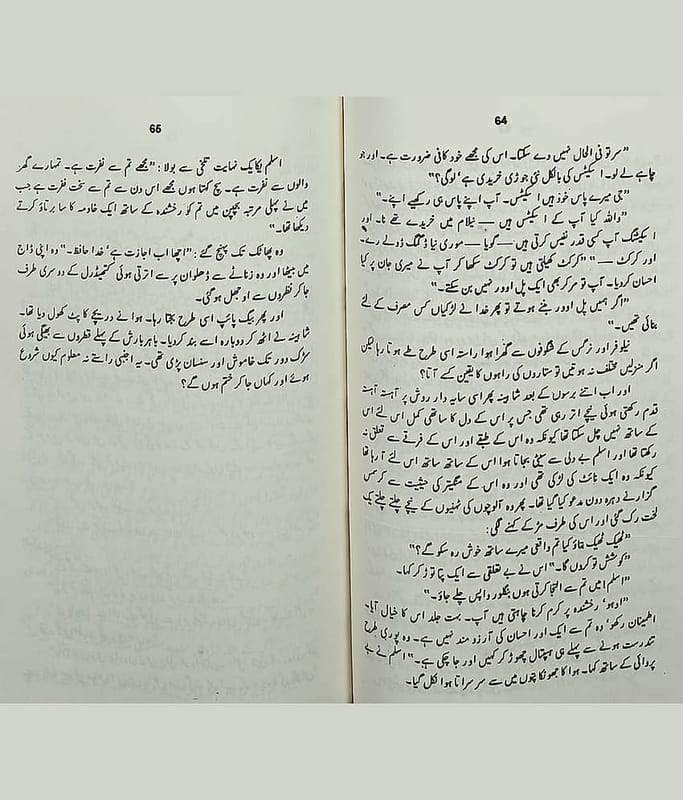 64
”سر تو فی الحال نہیں دے سکتا۔ اس کی مجھے خود کافی ضرورت ہے۔ اور جو
چاہے لے لو۔ اسکیٹس کی بالکل نئی جوڑی خریدی ہے‘ لوگی؟“
”جی میرے پاس خود ہیں اسکیٹس۔ آپ اپنے پاس ہی رکھیے اپنے۔“
”واللہ کیا آپ کے اسکیٹس ہیں — نیلام میں خریدے تھے نا۔ اور
اسکیٹنگ آپ کسی قدر نفیس کرتی ہیں — گویا — موری نیا ڈگنگ ڈولے رے۔
اور کرکٹ —“ ”کرکٹ کھیلتی ہیں تو کرکٹ سکھا کر آپ نے میری جان پر کیا
احسان کر دیا۔ آپ تو مر کر بھی ایک پل اوور نہیں بن سکتے۔“
”اگر ہمیں پل اوور بننے ہوتے تو پھر خدا نے لڑکیاں کس مصرف کے لئے
بنائی تھیں۔“
نیلوفر اور نرگس کے شگوفوں سے گھرا ہوا راستہ اسی طرح طے ہوتا رہا لیکن
اگر منزلیں مختلف نہ ہوتیں تو ستاروں کی راہوں کا یقین کسے آتا؟
اور اب اتنے برسوں کے بعد شاہینہ پھر اسی سایہ دار روش پر آہستہ آہستہ
قدم رکھتی ہوئی نیچے اتر رہی تھی جس پر اس کے دل کا ساتھی کمل اس لئے اس
کے ساتھ نہیں چل سکتا تھا کیونکہ وہ اس کے طبقے اور اس کے فرقے سے تعلق نہ
رکھتا تھا اور اسلم بے دلی سے سیٹی بجاتا ہوا اس کے ساتھ ساتھ اس لئے آ رہا تھا
کیونکہ وہ ایک نائٹ کی لڑکی تھی اور وہ اس کے منگیتر کی حیثیت سے کرسمس
گزارنے دہرہ دون مدعو کیا گیا تھا۔ پھر وہ آلوچوں کی ٹہنیوں کے نیچے چلتے چلتے یک
لخت رک گئی اور اس کی طرف مڑ کے کہنے لگی:
”ٹھیک ٹھیک بتاؤ کیا تم واقعی میرے ساتھ خوش رہ سکو گے؟“
”کوشش تو کروں گا۔“ اس نے بے تعلقی سے ایک پتا توڑ کر کہا۔
”اسلم! میں تم سے التجا کرتی ہوں بنگلور واپس چلے جاؤ۔“
”اوہو‘ رخشندہ پر کرم کرنا چاہتی ہیں آپ۔ بہت جلد اس کا خیال آیا۔
اطمینان رکھو‘ وہ تم سے ایک اور احسان کی آرزو مند نہیں ہے۔ وہ پوری طرح
تندرست ہونے سے پہلے ہی ہسپتال چھوڑ کر کہیں اور جا چکی ہے۔“ اسلم نے بے
پروائی کے ساتھ کہا۔ ہوا کا جھونکا پتوں میں سے سرسراتا ہوا نکل گیا۔
65
اسلم یکایک نہایت تلخی سے بولا: ”مجھے تم سے نفرت ہے۔ تمہارے گھر
والوں سے نفرت ہے۔ سچ کہتا ہوں مجھے اس دن سے تم سے سخت نفرت ہے جب
میں نے پہلی مرتبہ بچپن میں تم کو رخشندہ کے ساتھ ایک خادمہ کا سا برتاؤ کرتے
دیکھا تھا۔“
وہ پھاٹک تک پہنچ گئے: ”اچھا اب اجازت ہے‘ خدا حافظ۔“ وہ اپنی ڈاج
میں بیٹھا اور وہ زناٹے سے ڈھلوان پر سے اترتی ہوئی کتھیڈرل کے دوسری طرف
جا کر نظروں سے اوجھل ہو گئی۔
اور پھر بیگ پائپ اسی طرح بجتا رہا۔ ہوا نے دریچے کا پٹ کھول دیا تھا۔
شاہینہ نے اٹھ کر دوبارہ اسے بند کر دیا۔ باہر بارش کے پہلے قطروں سے بھیگی ہوئی
سڑک دور تک خاموش اور سنسان پڑی تھی۔ یہ اجنبی راستے نہ معلوم کیوں شروع
ہوئے اور کہاں جا کر ختم ہوں گے؟